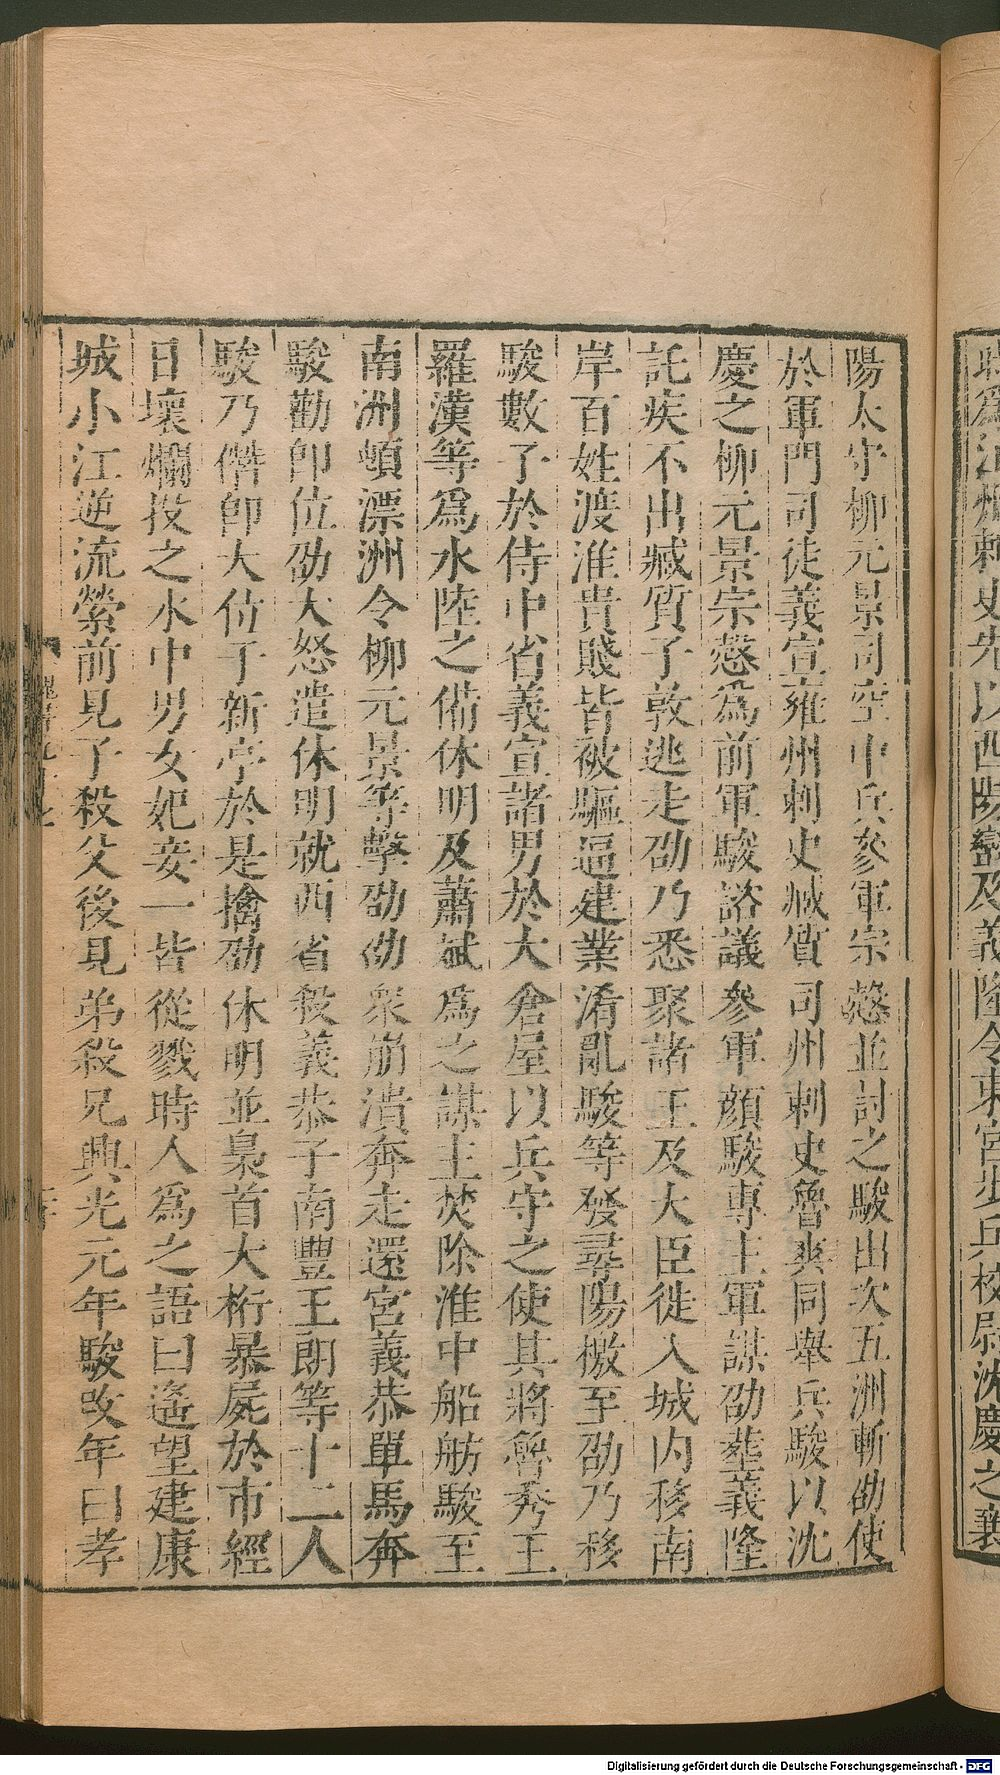 時爲江州刺史先以西陽蠻及義隆令東宮步兵校尉沈慶之襄
陽太守柳元景司空中兵參軍宗慤並討之駿出次五洲斬劭使
於軍門司徒義宣雍州刺史臧質司州刺史魯爽同舉兵駿以沈
慶之柳元景宗慤為前軍駿諮議參軍顏駿專主軍謀劭葬義隆
託疾不出臧質子敦逃走劭乃悉聚諸王及大臣徙入城内移南
岸百姓渡淮貴賤皆被驅逼建業淆亂駿等發尋陽檄至劭乃移
駿數子於侍中省義宣諸男於大倉屋以兵守之使其將魯秀王
羅漢等爲水陸之備休明及蕭斌爲之謀主焚除淮中船舫駿至
南洲頓漂洲令柳元景等擊劭劭衆崩潰奔走還宮義恭單馬奔
駿勸卽位劭大怒遣休明就西省殺義恭子南豐王朗等十二人
駿乃僭卽大位于新亭於是擒劭休明並梟首大桁暴屍於市經
日壞爛投之水中男女妃妾一皆從戮時人爲之語曰遙望建康
城小江逆流縈前見子殺父後見弟殺兄興光元年駿改年曰孝
Digitalisierung gefördert durch die Deutsche Forschungsgemeinschaft - DFG